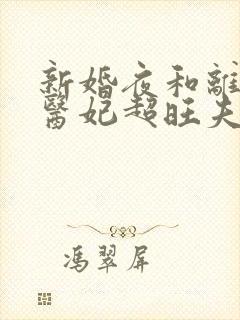 新婚夜和離
醫妃超旺夫
馮翠屏